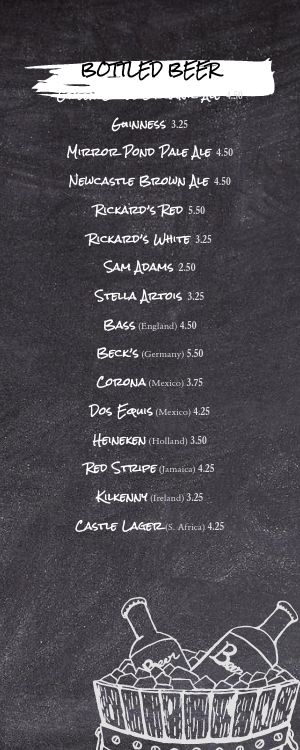 BOTTLED BEER
Ale 4.50
Guinness 3.25
Mirror Pond Pale Ale 4.50
Newcastle Brown Ale 4.50
Rickard's Red 5.50
Rickard's White 3.25
Sam Adams 2.50
Stella Artois 3.25
Bass (England) 4.50
Beck's (Germany) 5.50
Corona (Mexico) 3.75
Dos Equis (Mexico) 4.25
Heineken (Holland) 3.50
Red Stripe (Jamaica) 4.25
Kilkenny (Ireland) 3.25
Castle Lager (S. Africa) 4.25
Beer
Beer